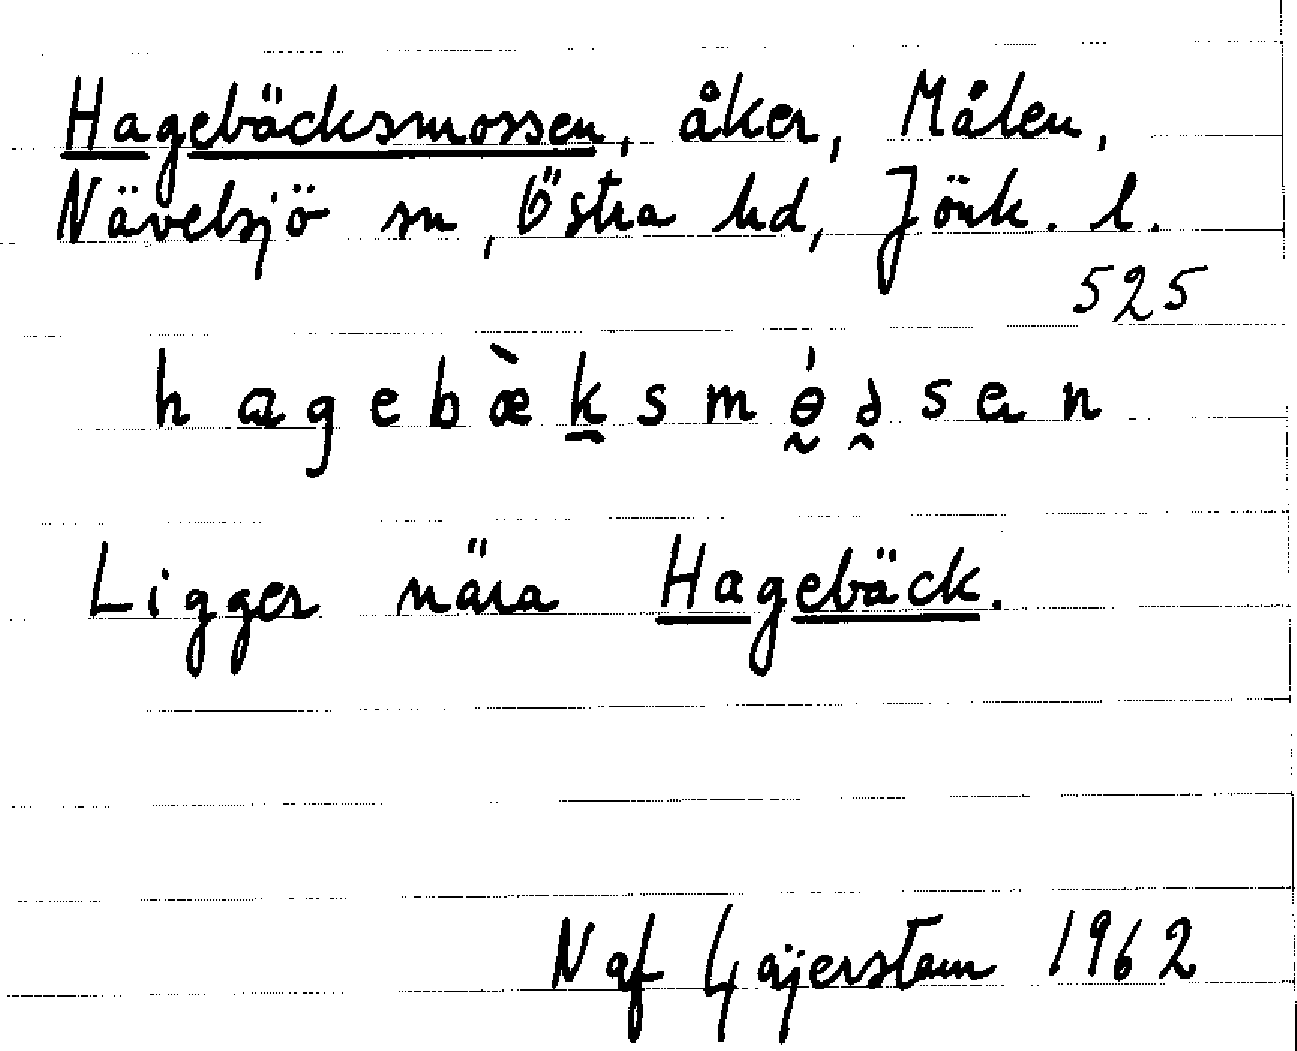 Hagebäcksmossen, åker, Målen,
Nävelsjö sn, Östra hd, Jönk. l.
525
hagebæ̀ksmɵ́ssen
Ligger nära Hagebäck.
N af Gajerstam 1962